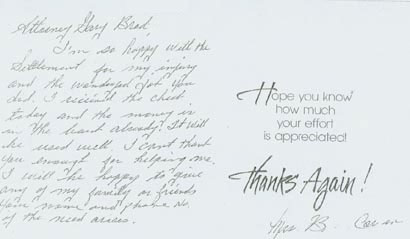 Attorney Gary Brod,
I'm so happy with the
settlement for my injury
and the wonderful job you
did. I received the check
today and the money is
in the bank already! It will
be used well. I can't thank
you enough for helping me.
I will be happy to give
any of my family or friends
your name and phone no.
if the need arises.
Hope you know
how much
your effort
is appreciated!
Thanks Again!
Mrs B.